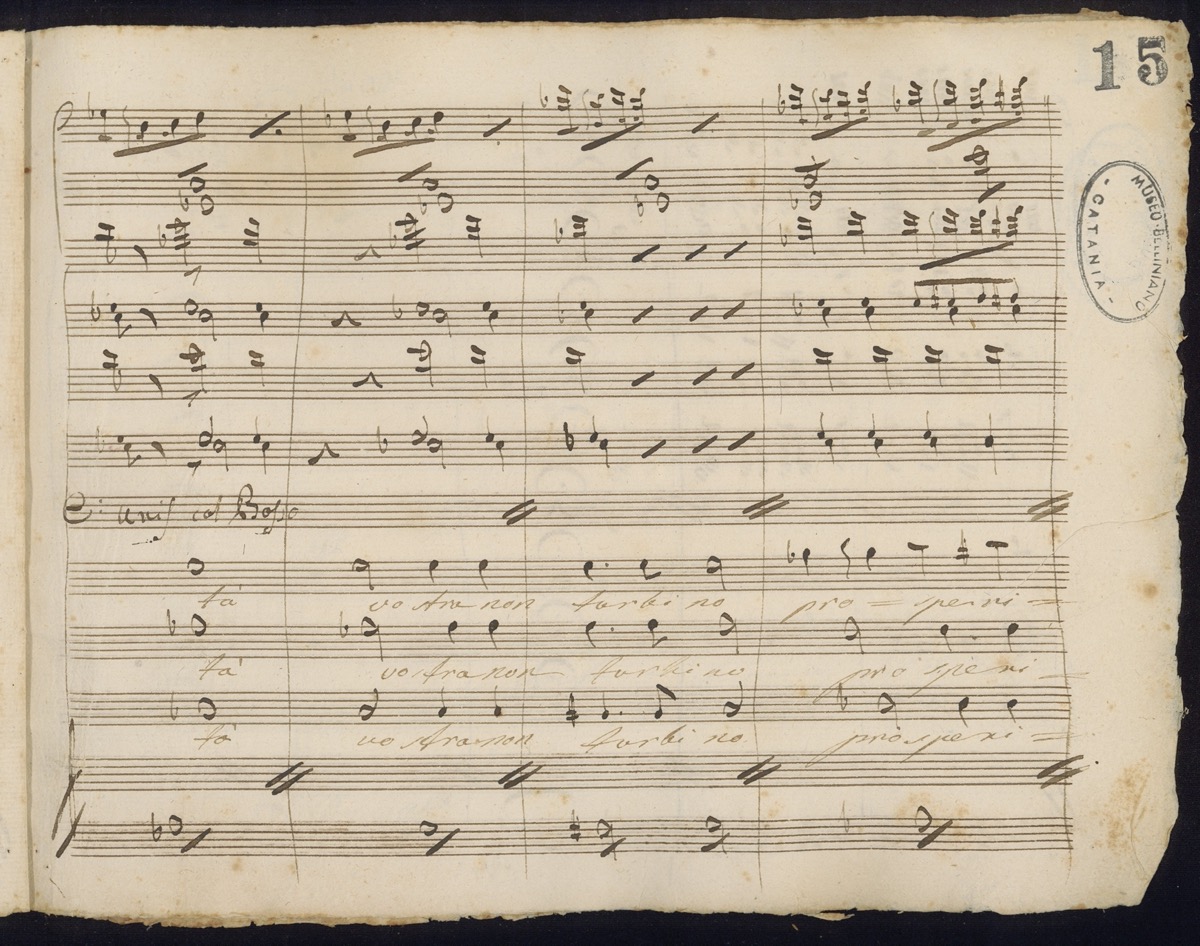 15
MUSEO·BELLINIANO
- CATANIA -
unis col Basso
tà vostra non turbino pro = speri =
tà vostra non turbino prosperi =
tà vostra non turbino prosperi =